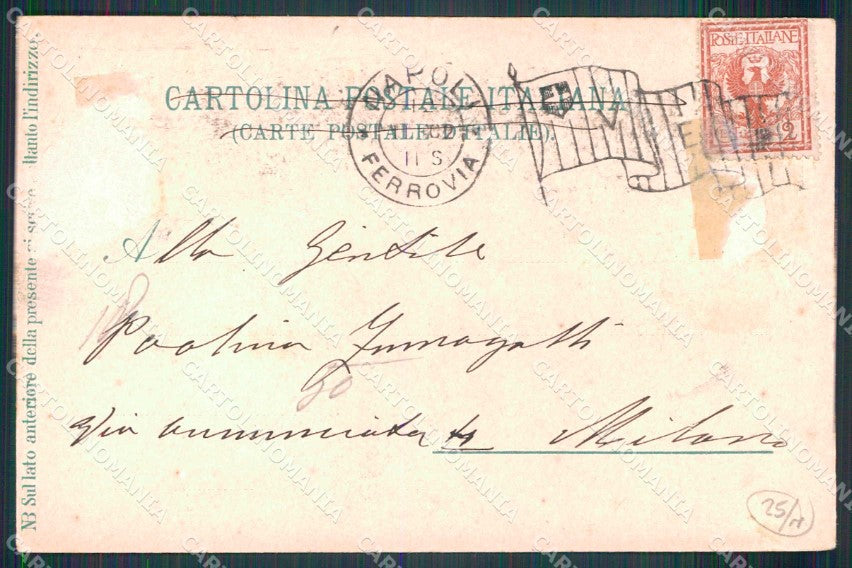 CARTOLINA POSTALE ITALIANA
(CARTE POSTALE D'ITALIE)
NAPOLI
11 S
FERROVIA
POSTE ITALIANE
2
Alla Gentile
Paolina Fumagalli
Via Annunciata 4 Milano
NB Sul lato anteriore della presente si scrive soltanto l'indirizzo.
50
25/M
CARTOLINOMANIA